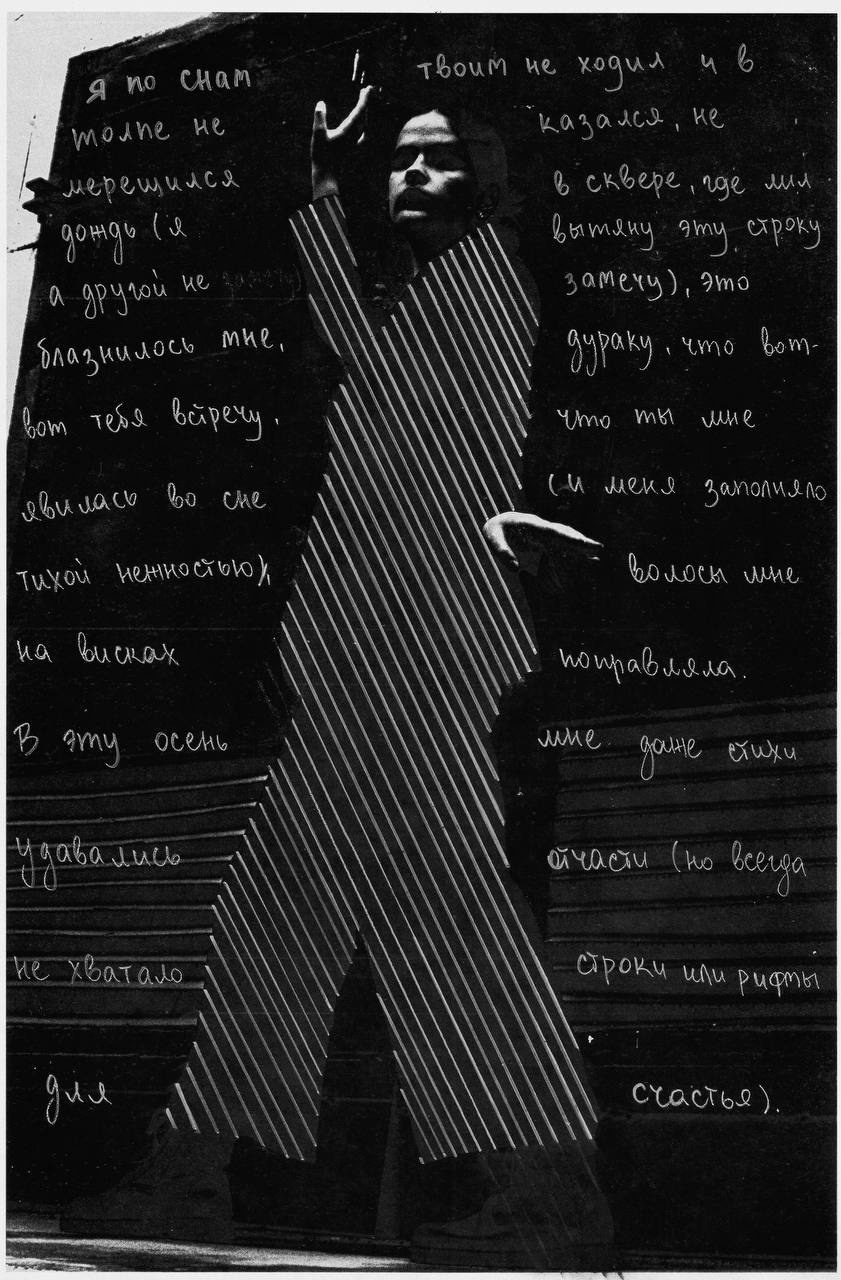 я по снам твоим не ходил и в
толпе не казался, не
мерещился в сквере, где лил
дождь (я вытяну эту строку
а другой не замечу), это
блазнилось мне, дураку, что вот-
вот тебя встречу, что ты мне
явилась во сне (и меня заполняло
тихой нежностью), волосы мне
на висках поправляла.
В эту осень мне даже стихи
удавались отчасти (но всегда
не хватало строки или рифмы
для счастья).